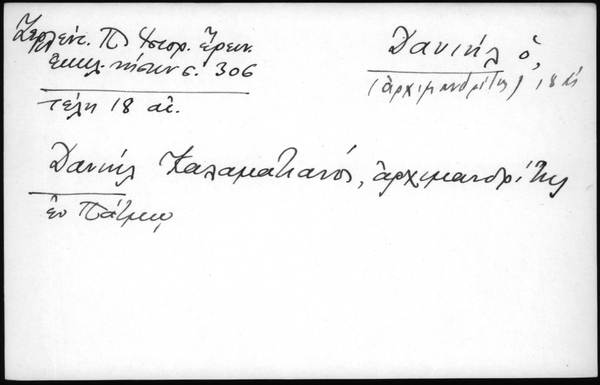 Ζερλέντ. Π Ἱστορ. Ἔρευν.
ἐκκλ. νήσων σ. 306
τέλη 18 αἰ.
Δανιήλ ὁ,
(ἀρχιμανδρίτης) 18 αἰ
Δανιήλ Καλαματιανός, ἀρχιμανδρίτης
ἐν Πάτμῳ